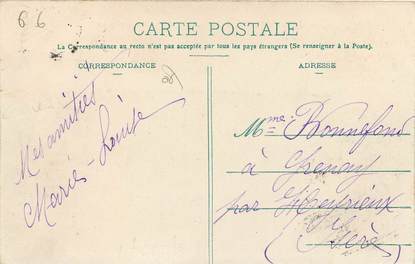 6 6
CARTE POSTALE
La Correspondance au recto n'est pas acceptée par tous les pays étrangers (Se renseigner à la Poste).
CORRESPONDANCE
Mes amitiés
Marie-Louise
ADRESSE
Mme Bonnefond
à Grenay
par Heyrieux
(Isère)